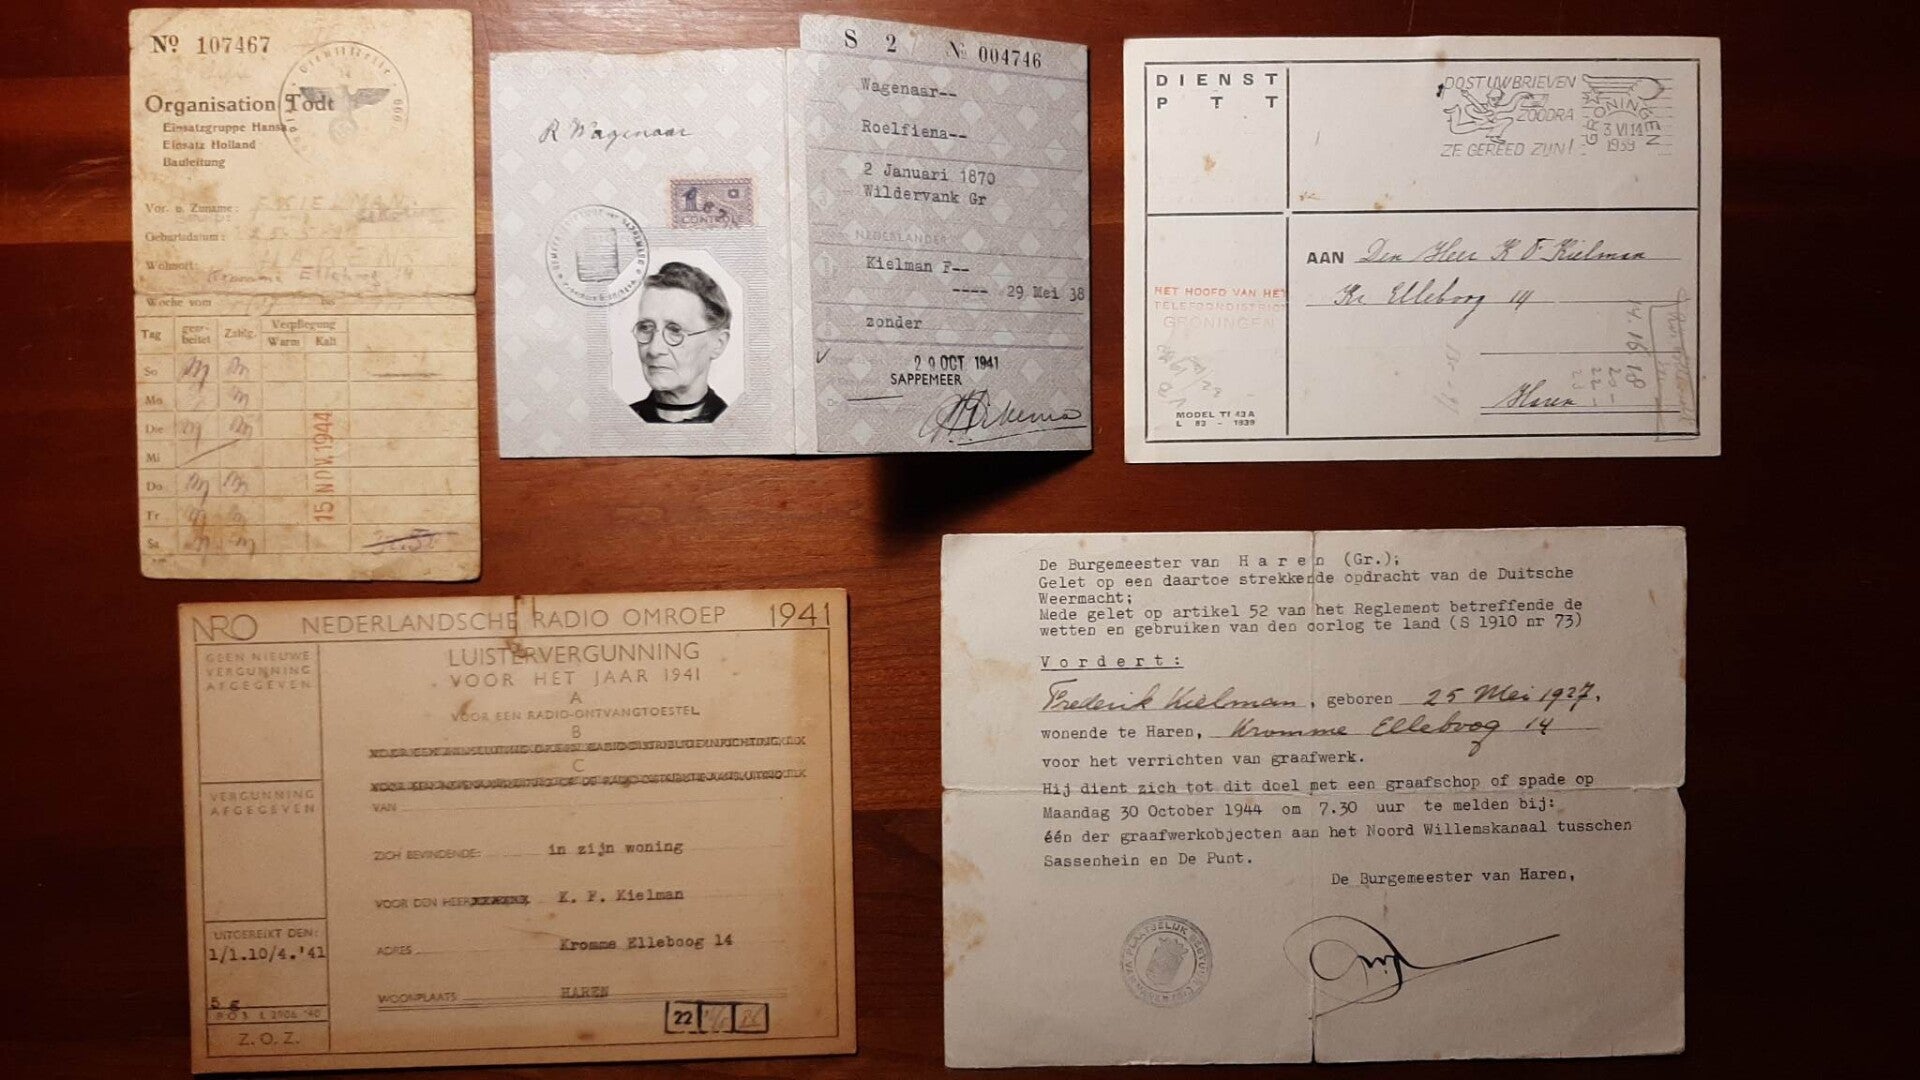 Nº 107467
Organisation Todt
Einsatzgruppe Hansa
Einsatz Holland
Bauleitung
Vor. u. Zuname: F. KIELMAN
Geburtsdatum:
Wohnort: HAREN
Kromme Elleboog 14
Woche vom bis
Tag gear-beitet Zahlg. Verpflegung
Warm Kalt
So
Mo
Die
Mi
Do
Fr
Sa
15 NOV. 1944
R Wagenaar
CONTROLE
S 2 Nº 004746
Wagenaar--
Roelfiena--
2 Januari 1870
Wildervank Gr
NEDERLANDER
Kielman F--
---- 29 Mei 38
zonder
29 OCT 1941
SAPPEMEER
DIENST
PTT
POST UW BRIEVEN
ZOODRA
ZE GEREED ZIJN!
GRONINGEN
3 VI 14
1939
AAN Den Heer K F Kielman
Kr Elleboog 14
Haren
HET HOOFD VAN HET
TELEFOONDISTRICT
GRONINGEN
14. 16 18
20-
22-
23-
MODEL TI 43A
L 83 - 1939
NRO NEDERLANDSCHE RADIO OMROEP 1941
GEEN NIEUWE
VERGUNNING
AFGEGEVEN
VERGUNNING
AFGEGEVEN
UITGEREIKT DEN:
1/1.10/4.'41
5 g
Z. O. Z.
LUISTERVERGUNNING
VOOR HET JAAR 1941
A
VOOR EEN RADIO-ONTVANGTOESTEL
B
C
VAN
ZICH BEVINDENDE: in zijn woning
VOOR DEN HEER K. F. Kielman
ADRES Kromme Elleboog 14
WOONPLAATS HAREN
22
De Burgemeester van Haren (Gr.);
Gelet op een daartoe strekkende opdracht van de Duitsche
Weermacht;
Mede gelet op artikel 52 van het Reglement betreffende de
wetten en gebruiken van den oorlog te land (S 1910 nr 73)
Vordert:
Frederik Kielman, geboren 25 Mei 1927,
wonende te Haren, Kromme Elleboog 14
voor het verrichten van graafwerk.
Hij dient zich tot dit doel met een graafschop of spade op
Maandag 30 October 1944 om 7.30 uur te melden bij:
één der graafwerkobjecten aan het Noord Willemskanaal tusschen
Sassenhein en De Punt.
De Burgemeester van Haren,